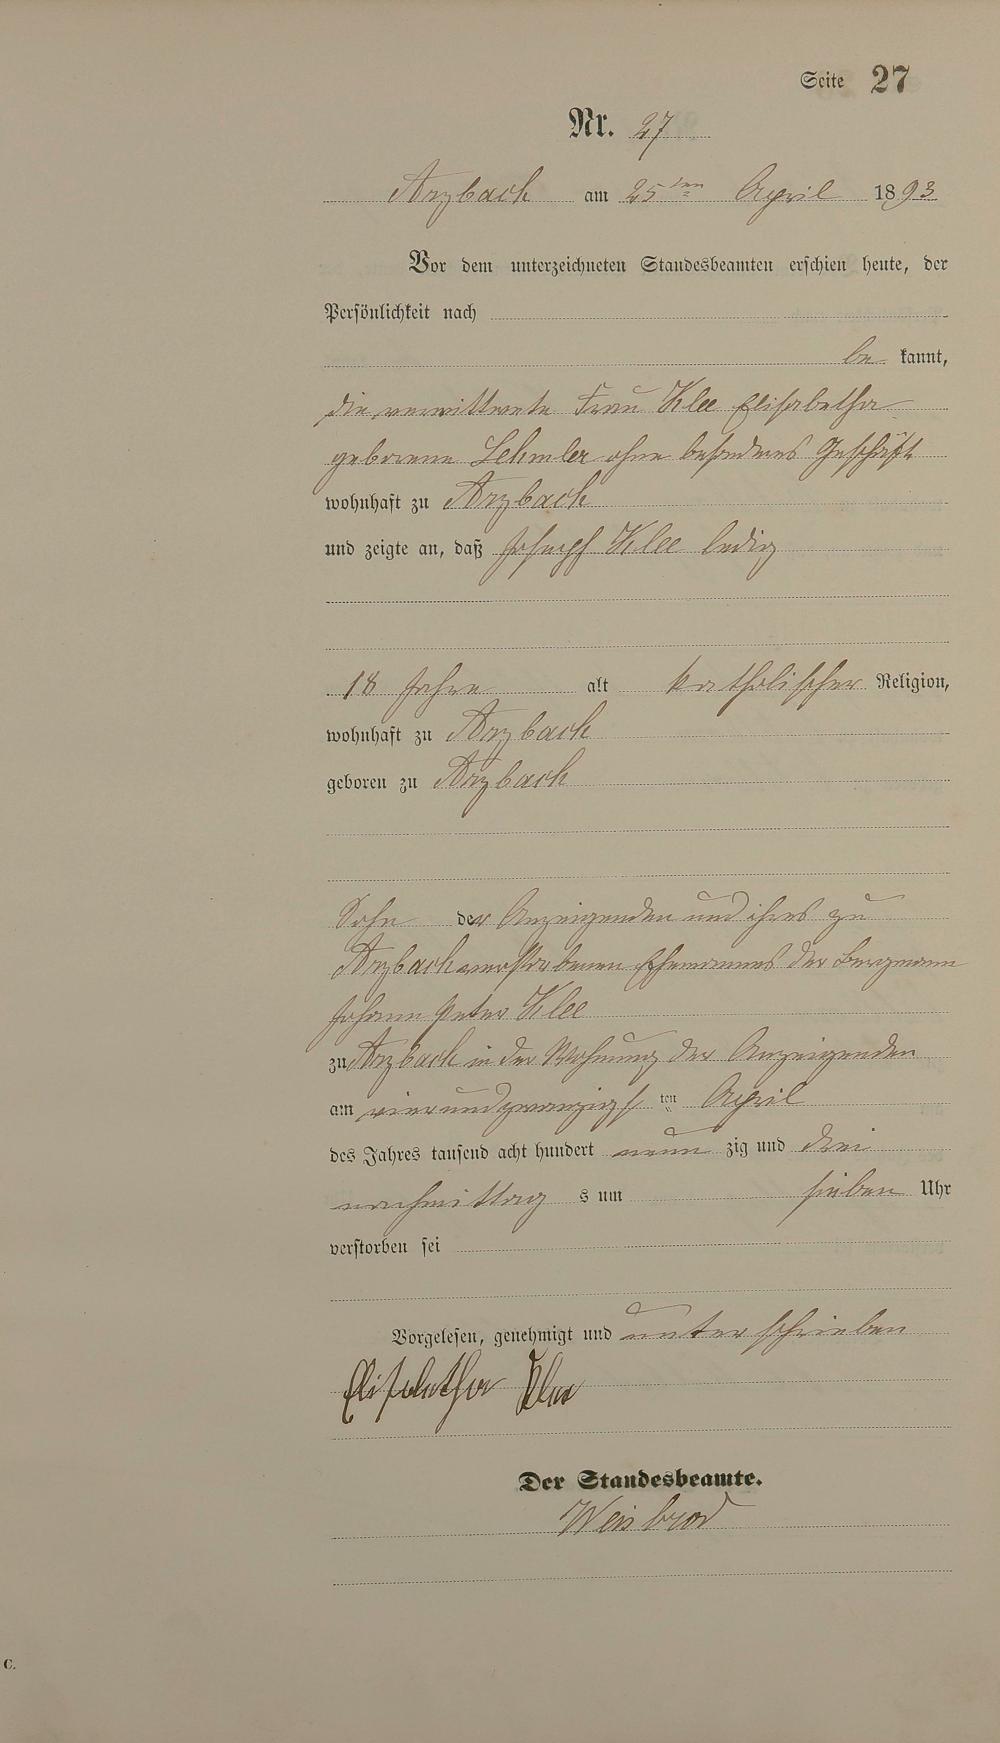 Seite 27
Nr. 27
Arzbach am 25ten April 1893
Vor dem unterzeichneten Standesbeamten erschien heute, der
Persönlichkeit nach
be kannt,
die verwittwete Frau Klee Elisabetha
geborene Lehmler ohne besonderes Geschäft
wohnhaft zu Arzbach
und zeigte an, daß Joseph Klee ledig
18 Jahre alt katholischer Religion,
wohnhaft zu Arzbach
geboren zu Arzbach
Sohn der Anzeigenden und ihres zu
Arzbach verstorbenen Ehemannes der Bergmann
Johann Peter Klee
zu Arzbach in der Wohnung der Anzeigenden
am vierundzwanzigs ten April
des Jahres tausend acht hundert neun zig und drei
nachmittag s um sieben Uhr
verstorben sei
Vorgelesen, genehmigt und unterschrieben
Elisabetha Klee
Der Standesbeamte.
Weisbrod
C.